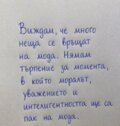 Виждам, че много
неща се връщат
на мода. Нямам
търпение за момента,
в който моралът,
уважението и
интелигентността ще са
пак на мода.